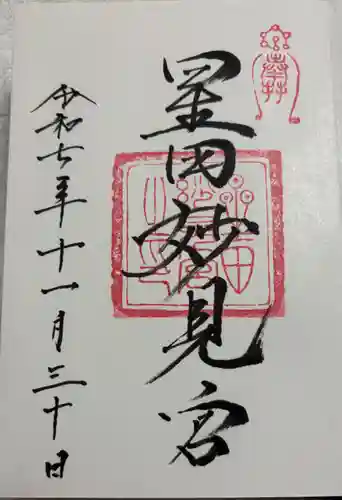 奉拝
星田妙見宮
令和七年十一月三十日